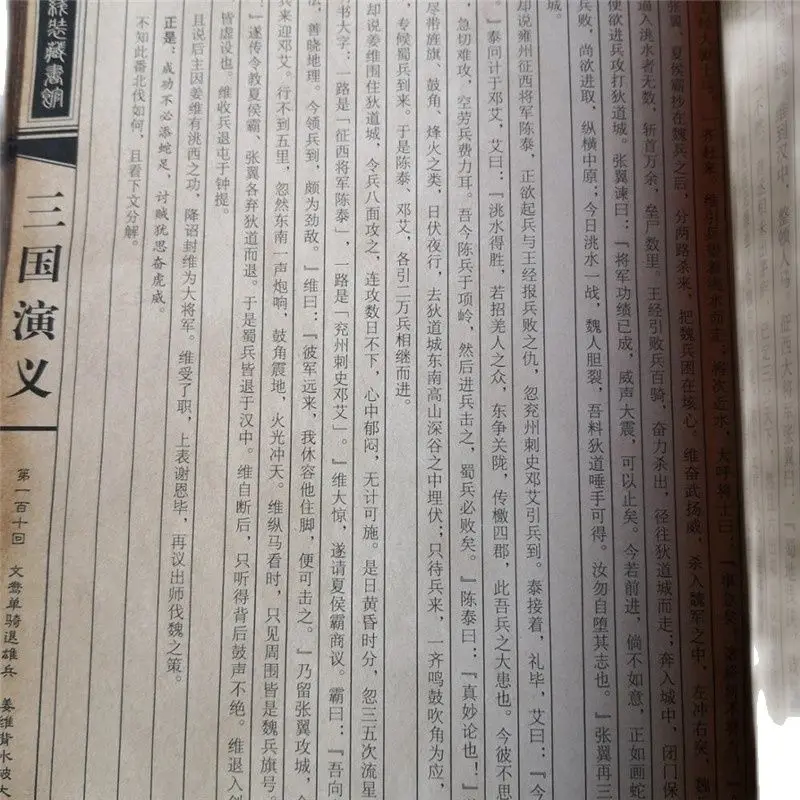 齐赶来。维引兵望着洮水而走；将次近水，大呼将士曰：
张翼、夏侯霸抄在魏兵之后，分两路杀来，把魏兵困在垓心。维奋武扬威，杀入魏军之中，左冲右突，魏
逼入洮水者无数，斩首万余，垒尸数里。王经引败兵百骑，奋力杀出，径往狄道城而走；奔入城中，闭门保
便欲进兵攻打狄道城。张翼谏曰：『将军功绩已成，威声大震，可以止矣。今若前进，倘不如意，正如画蛇
兵败，尚欲进取，纵横中原；今日洮水一战，魏人胆裂，吾料狄道唾手可得。汝勿自堕其志也。』张翼再三
城。
却说雍州征西将军陈泰，正欲起兵与王经报兵败之仇，忽兖州刺史邓艾引兵到。泰接着，礼毕，艾曰：『今
。』泰问计于邓艾，艾曰：『洮水得胜，若招羌人之众，东争关陇，传檄四郡，此吾兵之大患也。今彼不思
急切难攻，空劳兵费力耳。吾今陈兵于项岭，然后进兵击之，蜀兵必败矣。』陈泰曰：『真妙论也！』
尽带旌旗、鼓角、烽火之类，日伏夜行，去狄道城东南高山深谷之中埋伏；只待兵来，一齐鸣鼓吹角为应，
专候蜀兵到来。于是陈泰、邓艾，各引二万兵相继而进。
却说姜维围住狄道城，令兵八面攻之，连攻数日不下，心中郁闷，无计可施。是日黄昏时分，忽三五次流星
书大字：一路是「征西将军陈泰」，一路是「兖州刺史邓艾」。』维大惊，遂请夏侯霸商议。霸曰：『吾向
法，善晓地理。今领兵到，颇为劲敌。』维曰：『彼军远来，我休容他住脚，便可击之。』乃留张翼攻城，
兵来迎邓艾。行不到五里，忽然东南一声炮响，鼓角震地，火光冲天。维纵马看时，只见周围皆是魏兵旗号。
』遂传令教夏侯霸、张翼各弃狄道而退。于是蜀兵皆退于汉中。维自断后，只听得背后鼓声不绝。维退入剑
皆虚设也。维收兵退屯于钟提。
且说后主因姜维有洮西之功，降诏封维为大将军。维受了职，上表谢恩毕，再议出师伐魏之策。
正是：成功不必添蛇足，讨贼犹思奋虎威。
不知此番北伐如何，且看下文分解。
线装藏书馆
三国演义
第一百十回 文鸯单骑退雄兵 姜维背水破大